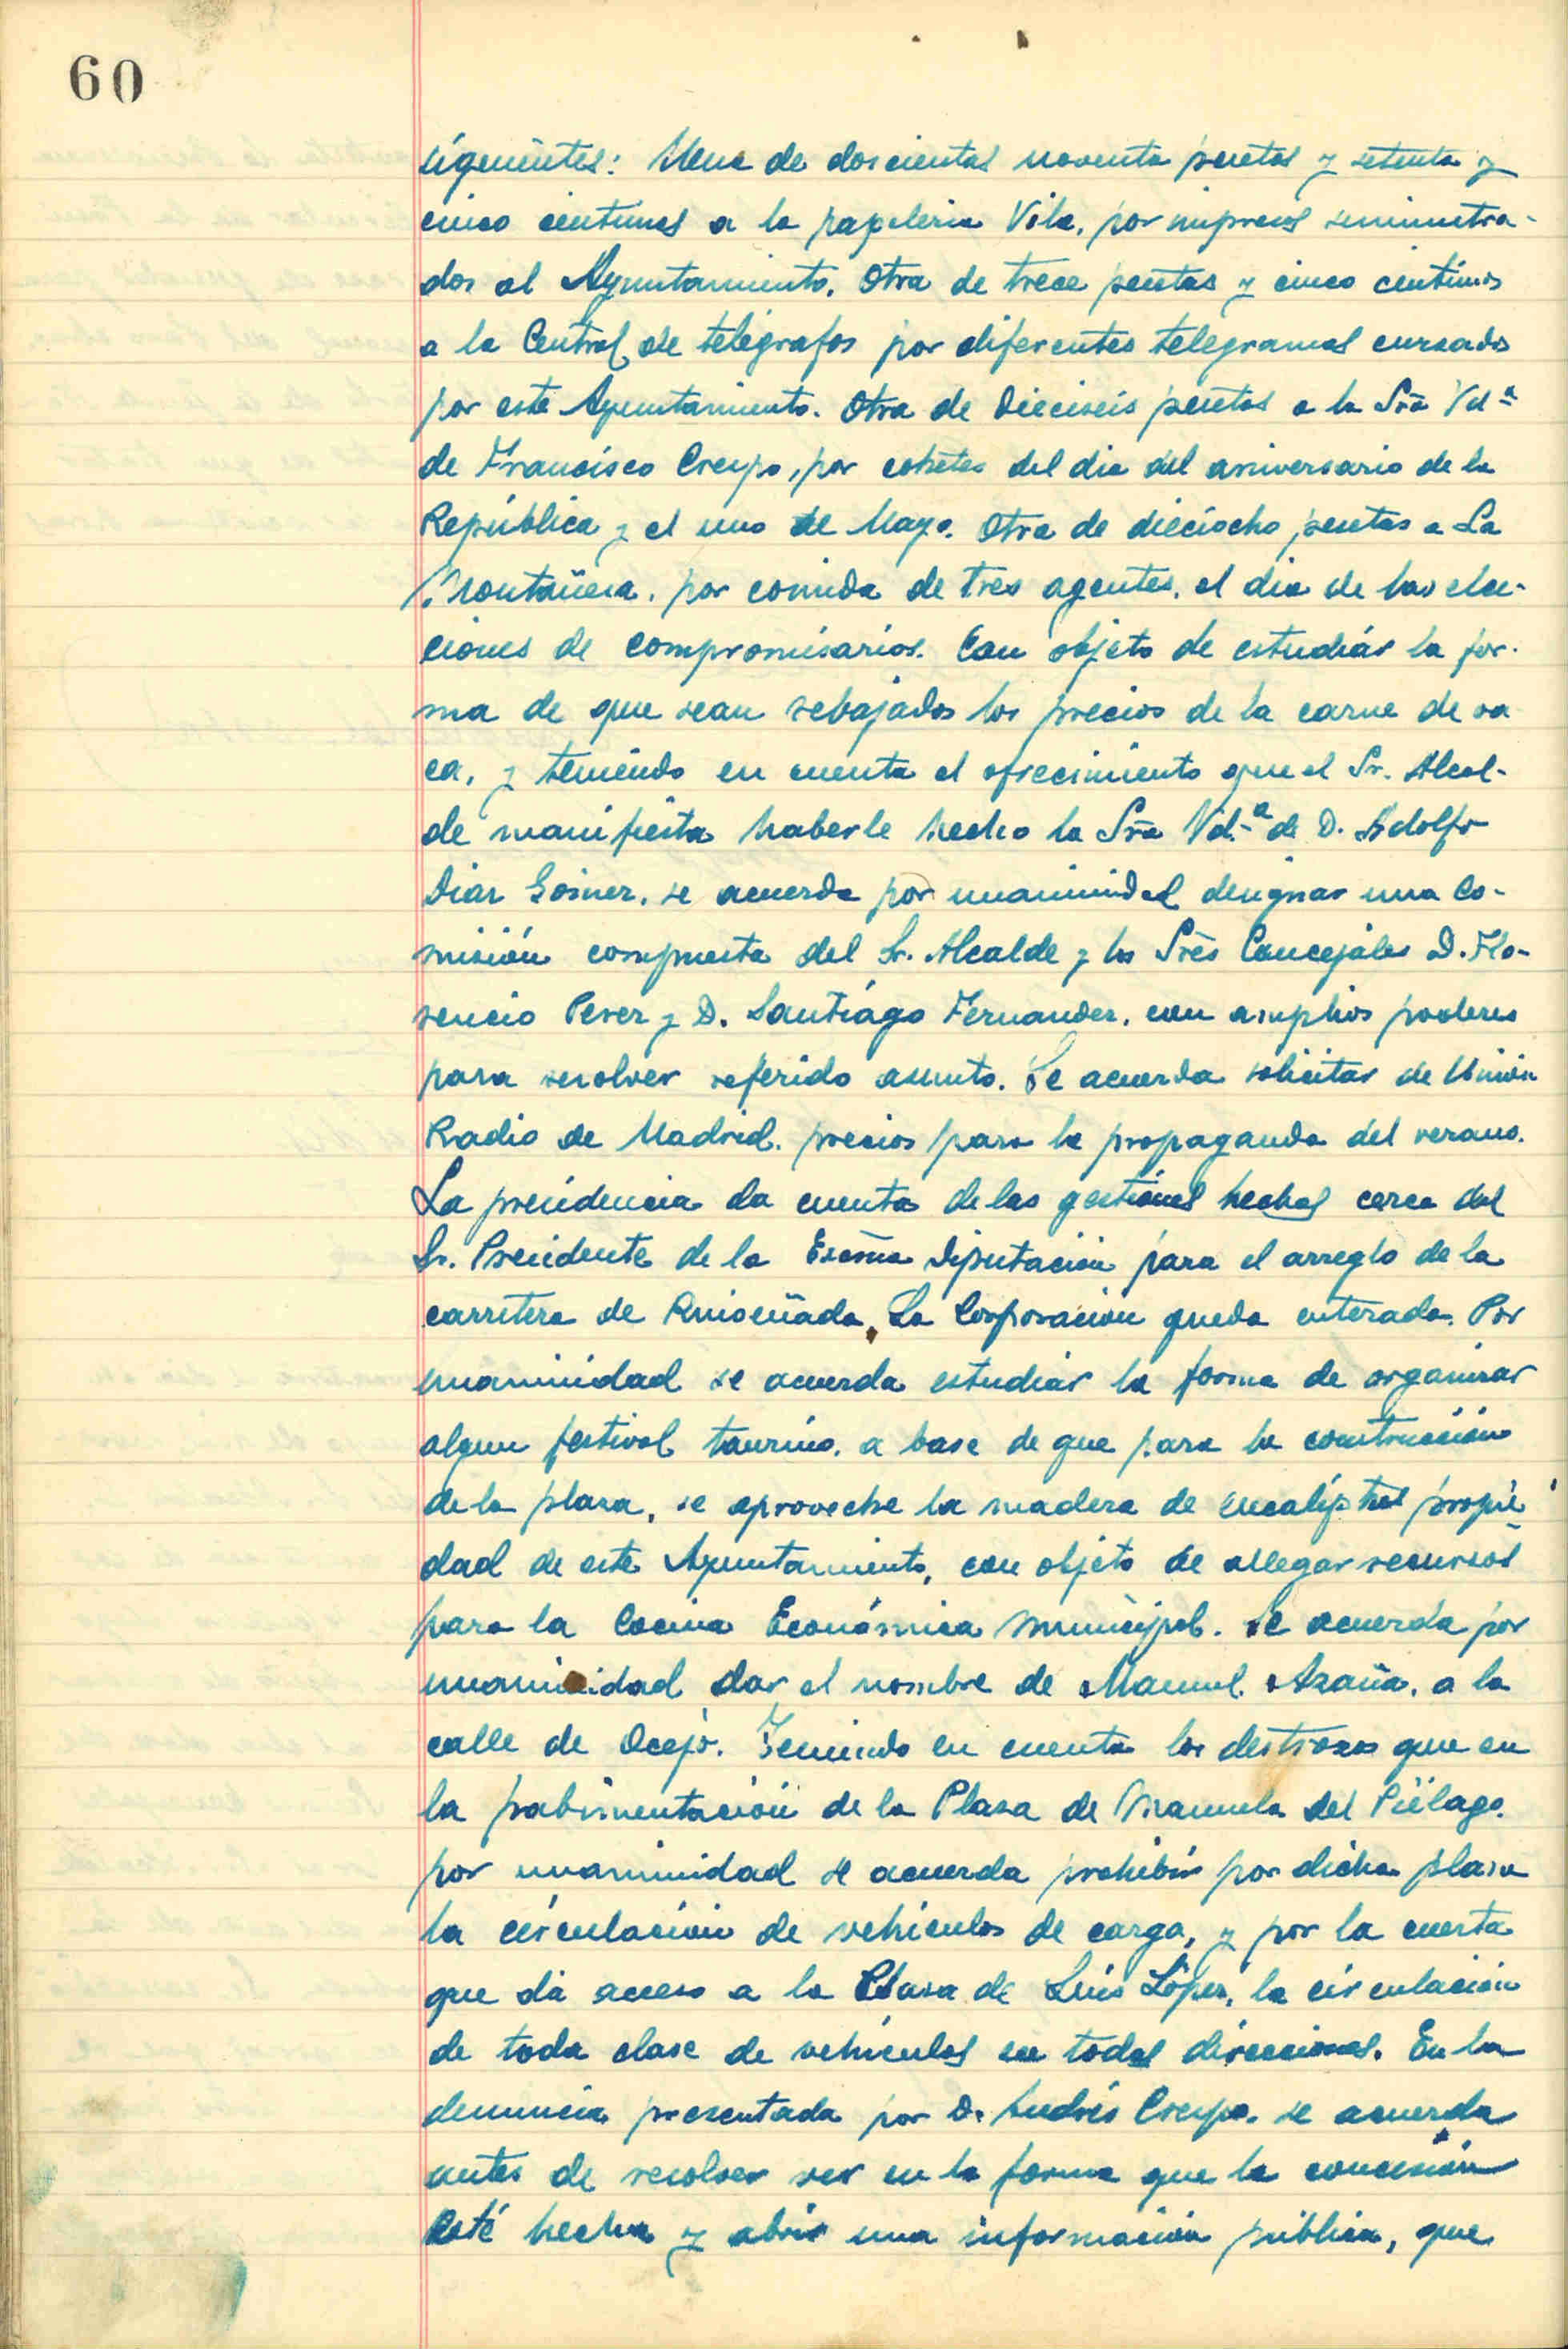 60
sigueintes: Una de doscientas noventa pesetas y setenta y
cinco centimos a la papeleria Vila, por impresos suministra-
dos al Ayuntamiento. Otra de trece pesetas y cinco centimos
a la Central de telégrafos por diferentes telegramas cursados
por este Ayuntamiento. Otra de Dieciseis pesetas a la Sra Vdª
de Francisco Crespo, por cohetes del dia del aniversario de la
República y el uno de Mayo. Otra de dieciocho pesetas a La
Montañesa, por comida de tres agentes, el dia de las elec-
ciones de compromisarios. Con objeto de estudiar la for-
ma de que sean rebajados los precios de la carne de va
ca, y teniendo en cuenta el ofrecimiento que el Sr. Alcal-
de manifiesta haberle hecho la Sra Vd.ª de D. Adolfo
Diaz, se acuerda por unanimidad designar una Co-
misión compuesta del Sr. Alcalde y los Sres Concejales D. Flo-
rencio Perez y D. Santiago Fernandez, con amplios poderes
para resolver referido asunto. Se acuerda solicitar de Unión
Radio de Madrid, precios para la propaganda del verano.
La presidencia da cuenta de las gestiones hechas cerca del
Sr. Presidente de la Excma Diputación para el arreglo de la
carretera de Ruiseñada, La Corporación queda enterada. Por
unanimidad se acuerda estudiar la forma de organizar
algun festival taurino, a base de que para la construcción
de la plaza, se aproveche la madera de eucaliptus propie
dad de este Ayuntamiento, con objeto de allegar recursos
para la Cocina Económica Municipal. Se acuerda por
unanimidad dar el nombre de Manuel Azaña, a la
calle de Ocejo. Teniendo en cuenta los destrozos que en
la pabimentación de la Plaza de Manuela del Piélago.
por unanimidad se acuerda prohibir por dicha plaza
la circulación de vehiculos de carga, y por la cuesta
que dá acceso a la Plaza de Luis López, la circulación
de toda clase de vehiculos en todas direcciones. En la
denuncia presentada por D. Andrés Crespo, se acuerda
antes de resolver ver en la forma que la concesión
está hecha y abrir una información pública, que